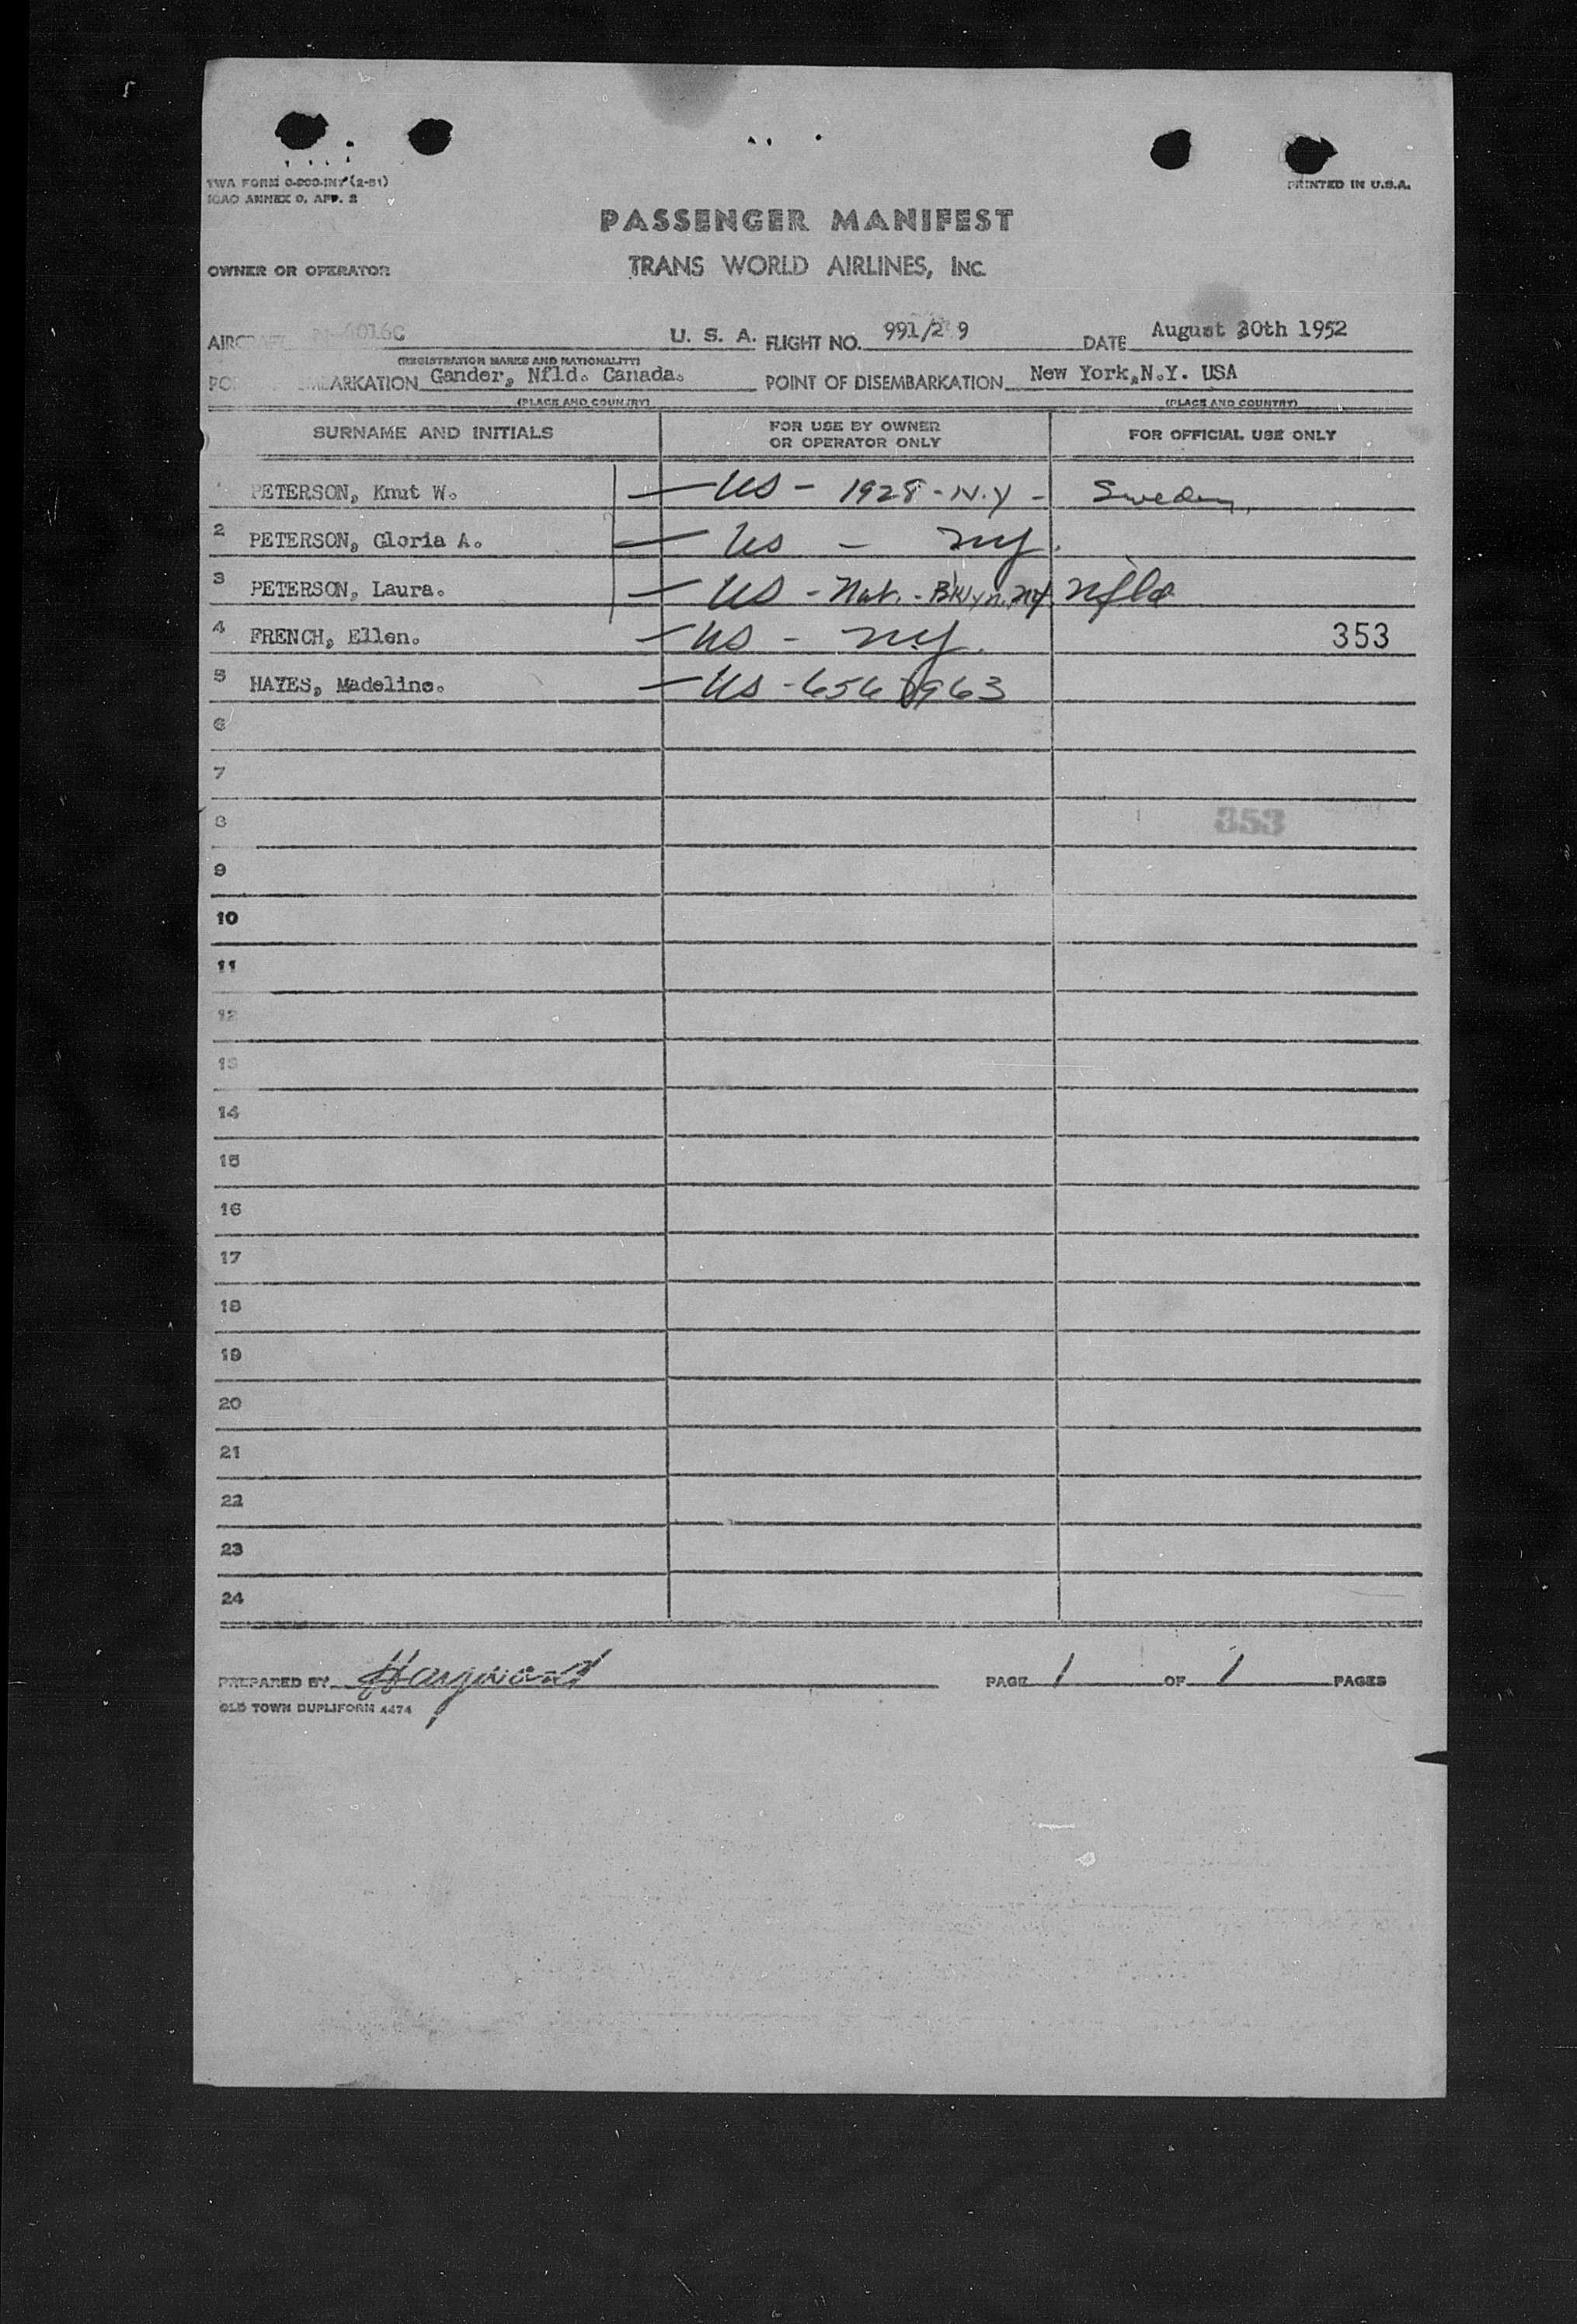 TWA FORM O-200-INT (2-51)
ICAO ANNEX 9, APP. 2
PRINTED IN U.S.A.
PASSENGER MANIFEST
OWNER OR OPERATOR
TRANS WORLD AIRLINES, INC.
AIRCRAFT N-6016C U. S. A. FLIGHT NO. 991/29 DATE August 30th 1952
(REGISTRATION MARKS AND NATIONALITY)
EMBARKATION Gander, Nfld. Canada. POINT OF DISEMBARKATION New York,N.Y. USA
(PLACE AND COUNTRY) (PLACE AND COUNTRY)
SURNAME AND INITIALS FOR USE BY OWNER OR OPERATOR ONLY FOR OFFICIAL USE ONLY
PETERSON, Knut W. — US - 1928 - N.Y - Sweden
2 PETERSON, Gloria A. — US - NY.
3 PETERSON, Laura. — US - Nat. - Bklyn. NY. Nfld
4 FRENCH, Ellen. — US - N.Y. 353
5 HAYES, Madeline. — US - 656963
6
7
8 353
9
10
11
12
13
14
15
16
17
18
19
20
21
22
23
24
PREPARED BY Hayward PAGE 1 OF 1 PAGES
OLD TOWN DUPLIFORM 4474